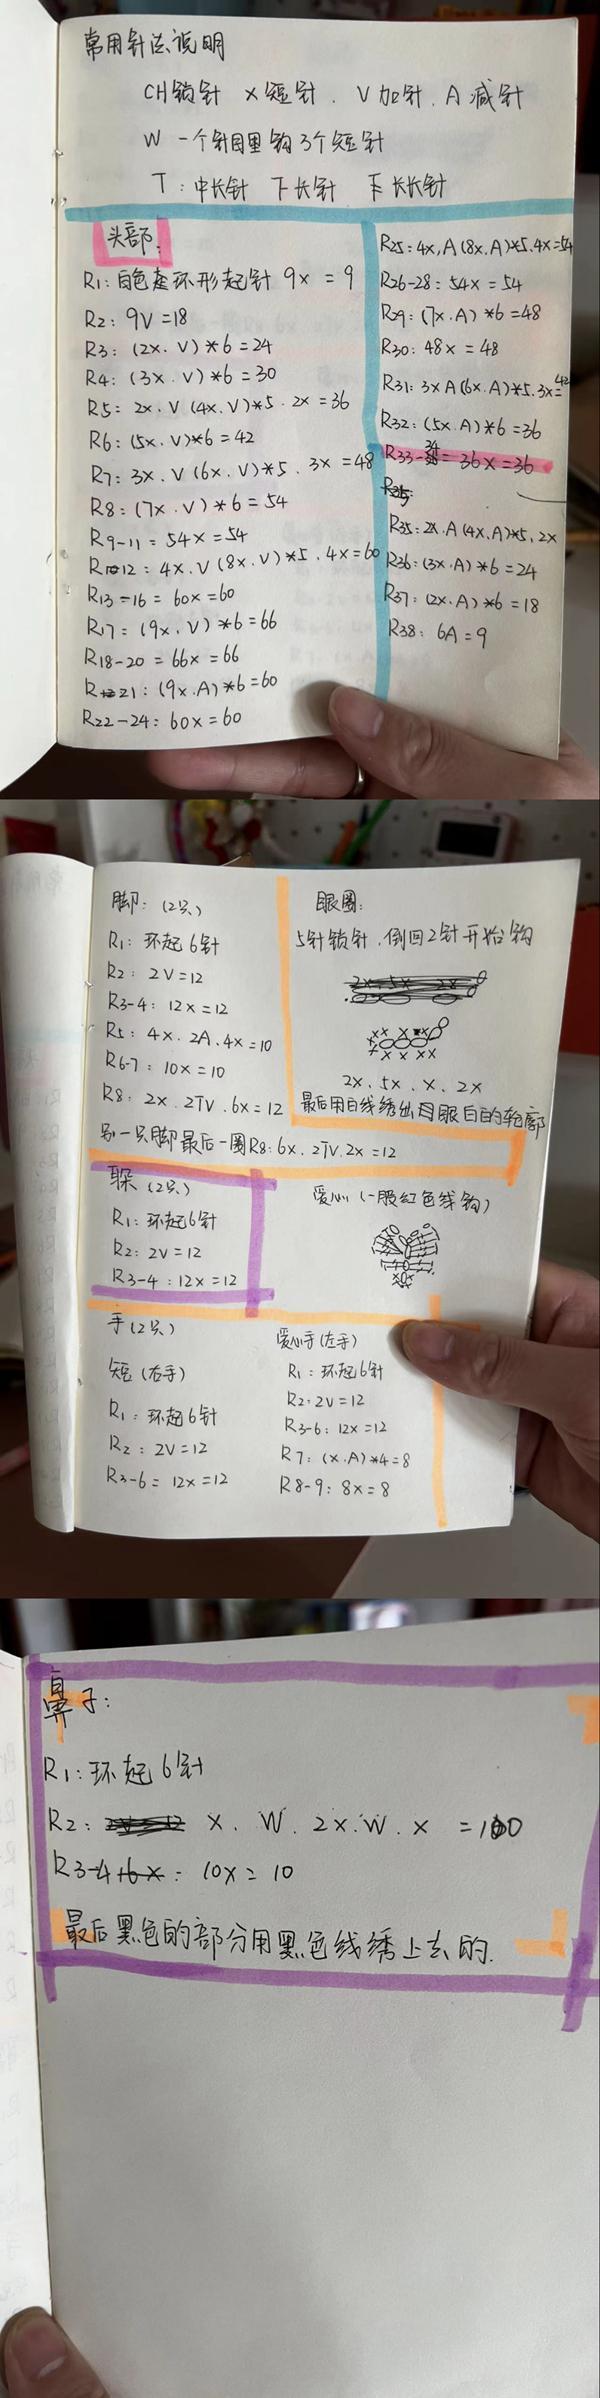 常用针法说明
CH锁针 X短针. V加针. A减针
W 一个针目里钩3个短针
T:中长针 下长针 长长针
头部:
R1:白色起环形起针 9X = 9
R2: 9V=18
R3: (2X.V)*6=24
R4: (3X.V)*6=30
R5: 2X.V(4X.V)*5.2X=36
R6: (5X.V)*6=42
R7: 3X.V(6X.V)*5.3X=48
R8: (7X.V)*6=54
R9-11=54X=54
R12: 4X.V(8X.V)*5.4X=60
R13-16=60X=60
R17=(9X.V)*6=66
R18-20=66X=66
R21:(9X.A)*6=60
R22-24:60X=60
R25:4X,A(8X.A)*5.4X=54
R26-28:54X=54
R29:(7X.A)*6=48
R30:48X=48
R31:3XA(6X.A)*5.3X=42
R32:(5X.A)*6=36
R33-34=36X=36
R35:2X.A(4X.A)*5.2X
R36:(3X.A)*6=24
R37:(2X.A)*6=18
R38: 6A=9
脚:(2只)
R1:环起6针
R2: 2V=12
R3-4: 12X=12
R5: 4X.2A.4X=10
R6-7: 10X=10
R8: 2X.2TV.6X=12
另一只脚最后一圈R8:6X.2TV.2X=12
眼圈:
5针锁针.倒回2针开始钩
2X.5X.X.2X
最后用白线绣出眼白的轮廓
(2只)
R1:环起6针
R2: 2V=12
R3-4: 12X=12
爱心(一股红色线钩)
手(2只)
短(右手)
R1:环起6针
R2: 2V=12
R3-6= 12X=12
爱心手(左手)
R1:环起6针
R2: 2V=12
R3-6: 12X=12
R7: (X.A)*4=8
R8-9: 8X=8
鼻子:
R1:环起6针
R2: X. W. 2X.W. X =10
R3-4: 10X= 10
最后黑色的部分用黑色线绣上去的.